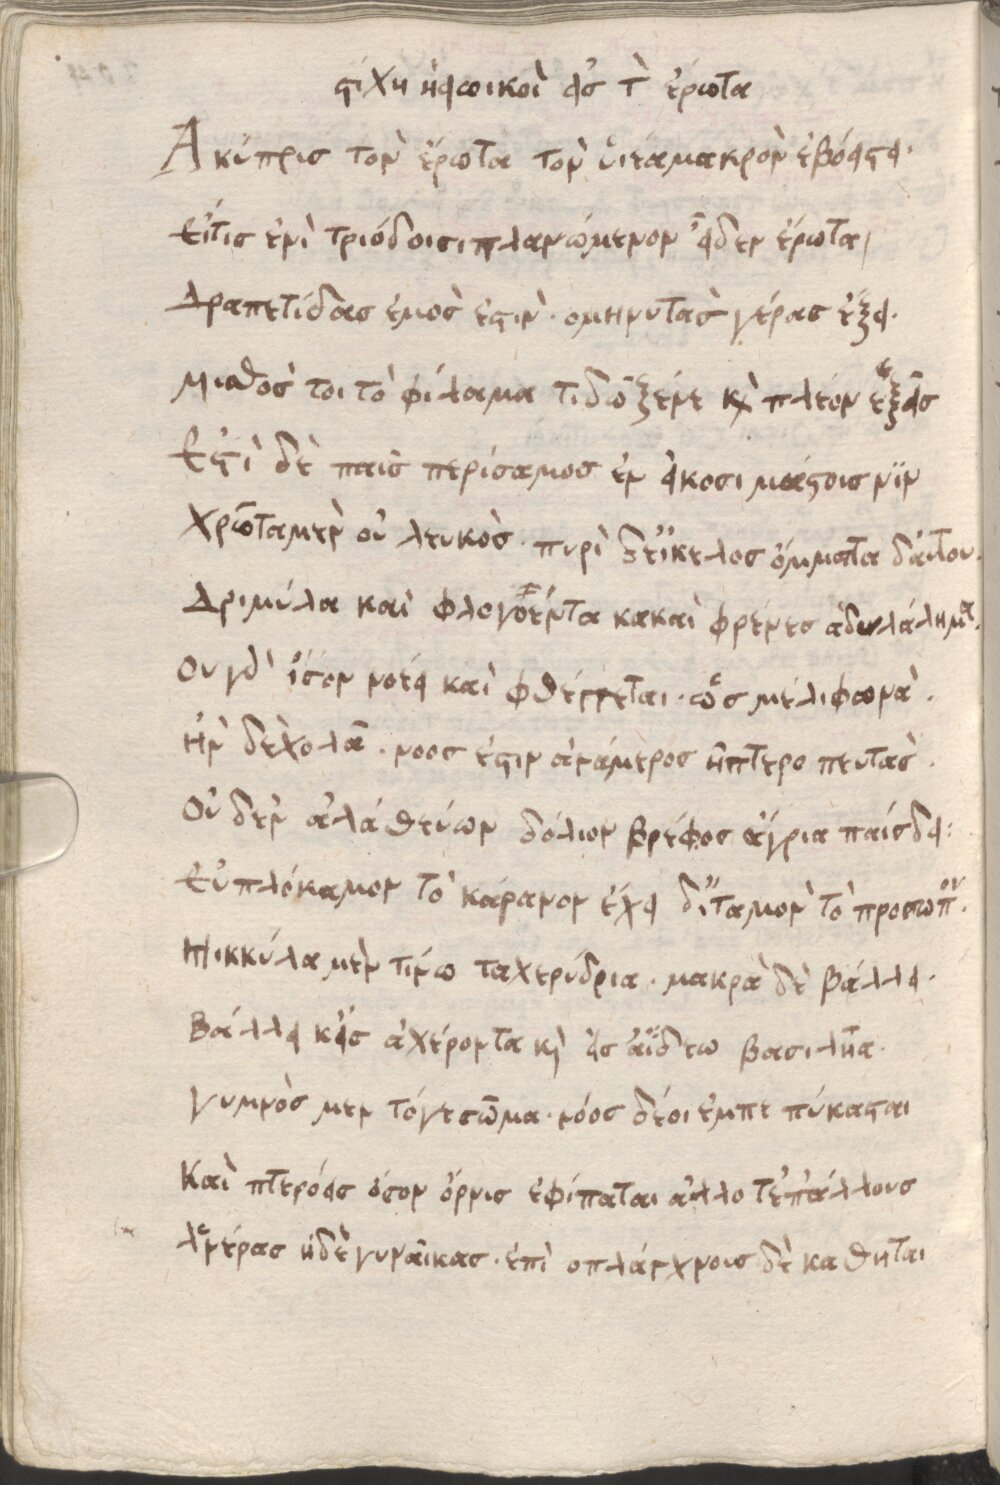 στίχη ἡρωικοὶ εἰς τὸν ἔρωτα
Α κύπρις τὸν ἔρωτα τὸν ὑιέα μακρὸν ἐβόαστει·
Εἴτις ἐνὶ τριόδοισι πλανώμενον εἶδεν ἔρωτα,
Δραπετίδας ἐμὸς ἐστιν· ομηνυτὰς γέρας ἕξει·
Μισθός τοι τὸ φίλαμα
Εστὶ δὲ παῖς περίσαμος ἐν εἴκοσι μάστοις νϊν
Χρῶταμὲν οὐ λευκὸς· πυρὶ δείκελος ὄμματα δἀυτου·
Δριμύλα καὶ φλογόεντα κακαὶ φρένες ἁδυλάλημα·
Ου γδ' ἴσον νοέει καὶ φθέγγεται· ὡς μέλιφωνὰ·
Ἢν δὲχολᾶ· νοος ἐστιν ἀνάμερος ἠπτερο πευτὰς·
Οὐδὲν ἀλάθεύων δόλιον βρέφος ἄγρια παίσδει:
Εὐπλόκαμον τὸ κάρανον ἔχει δἴταμον τὸ προσωπον·
Μικκύλα μὲν τήνω ταχερύδρια· μακρὰ δὲ βάλλει·
Βάλλει κεἰς ἀχέροντα κὶ εἰς ἀΐδεω βασιλῆα·
γυμνὸς μεν τόγεσῶμα· νόος δέοι ἐμπε πύκασται
Καὶ πτερόεις ὅσον ὄρνις ἐφίπαται ἀλλο τἐπἀλλους
Ἀνέρας ἠδὲγυναῖκας· ἐπὶ σπλάγχνοις δὲ καθηται